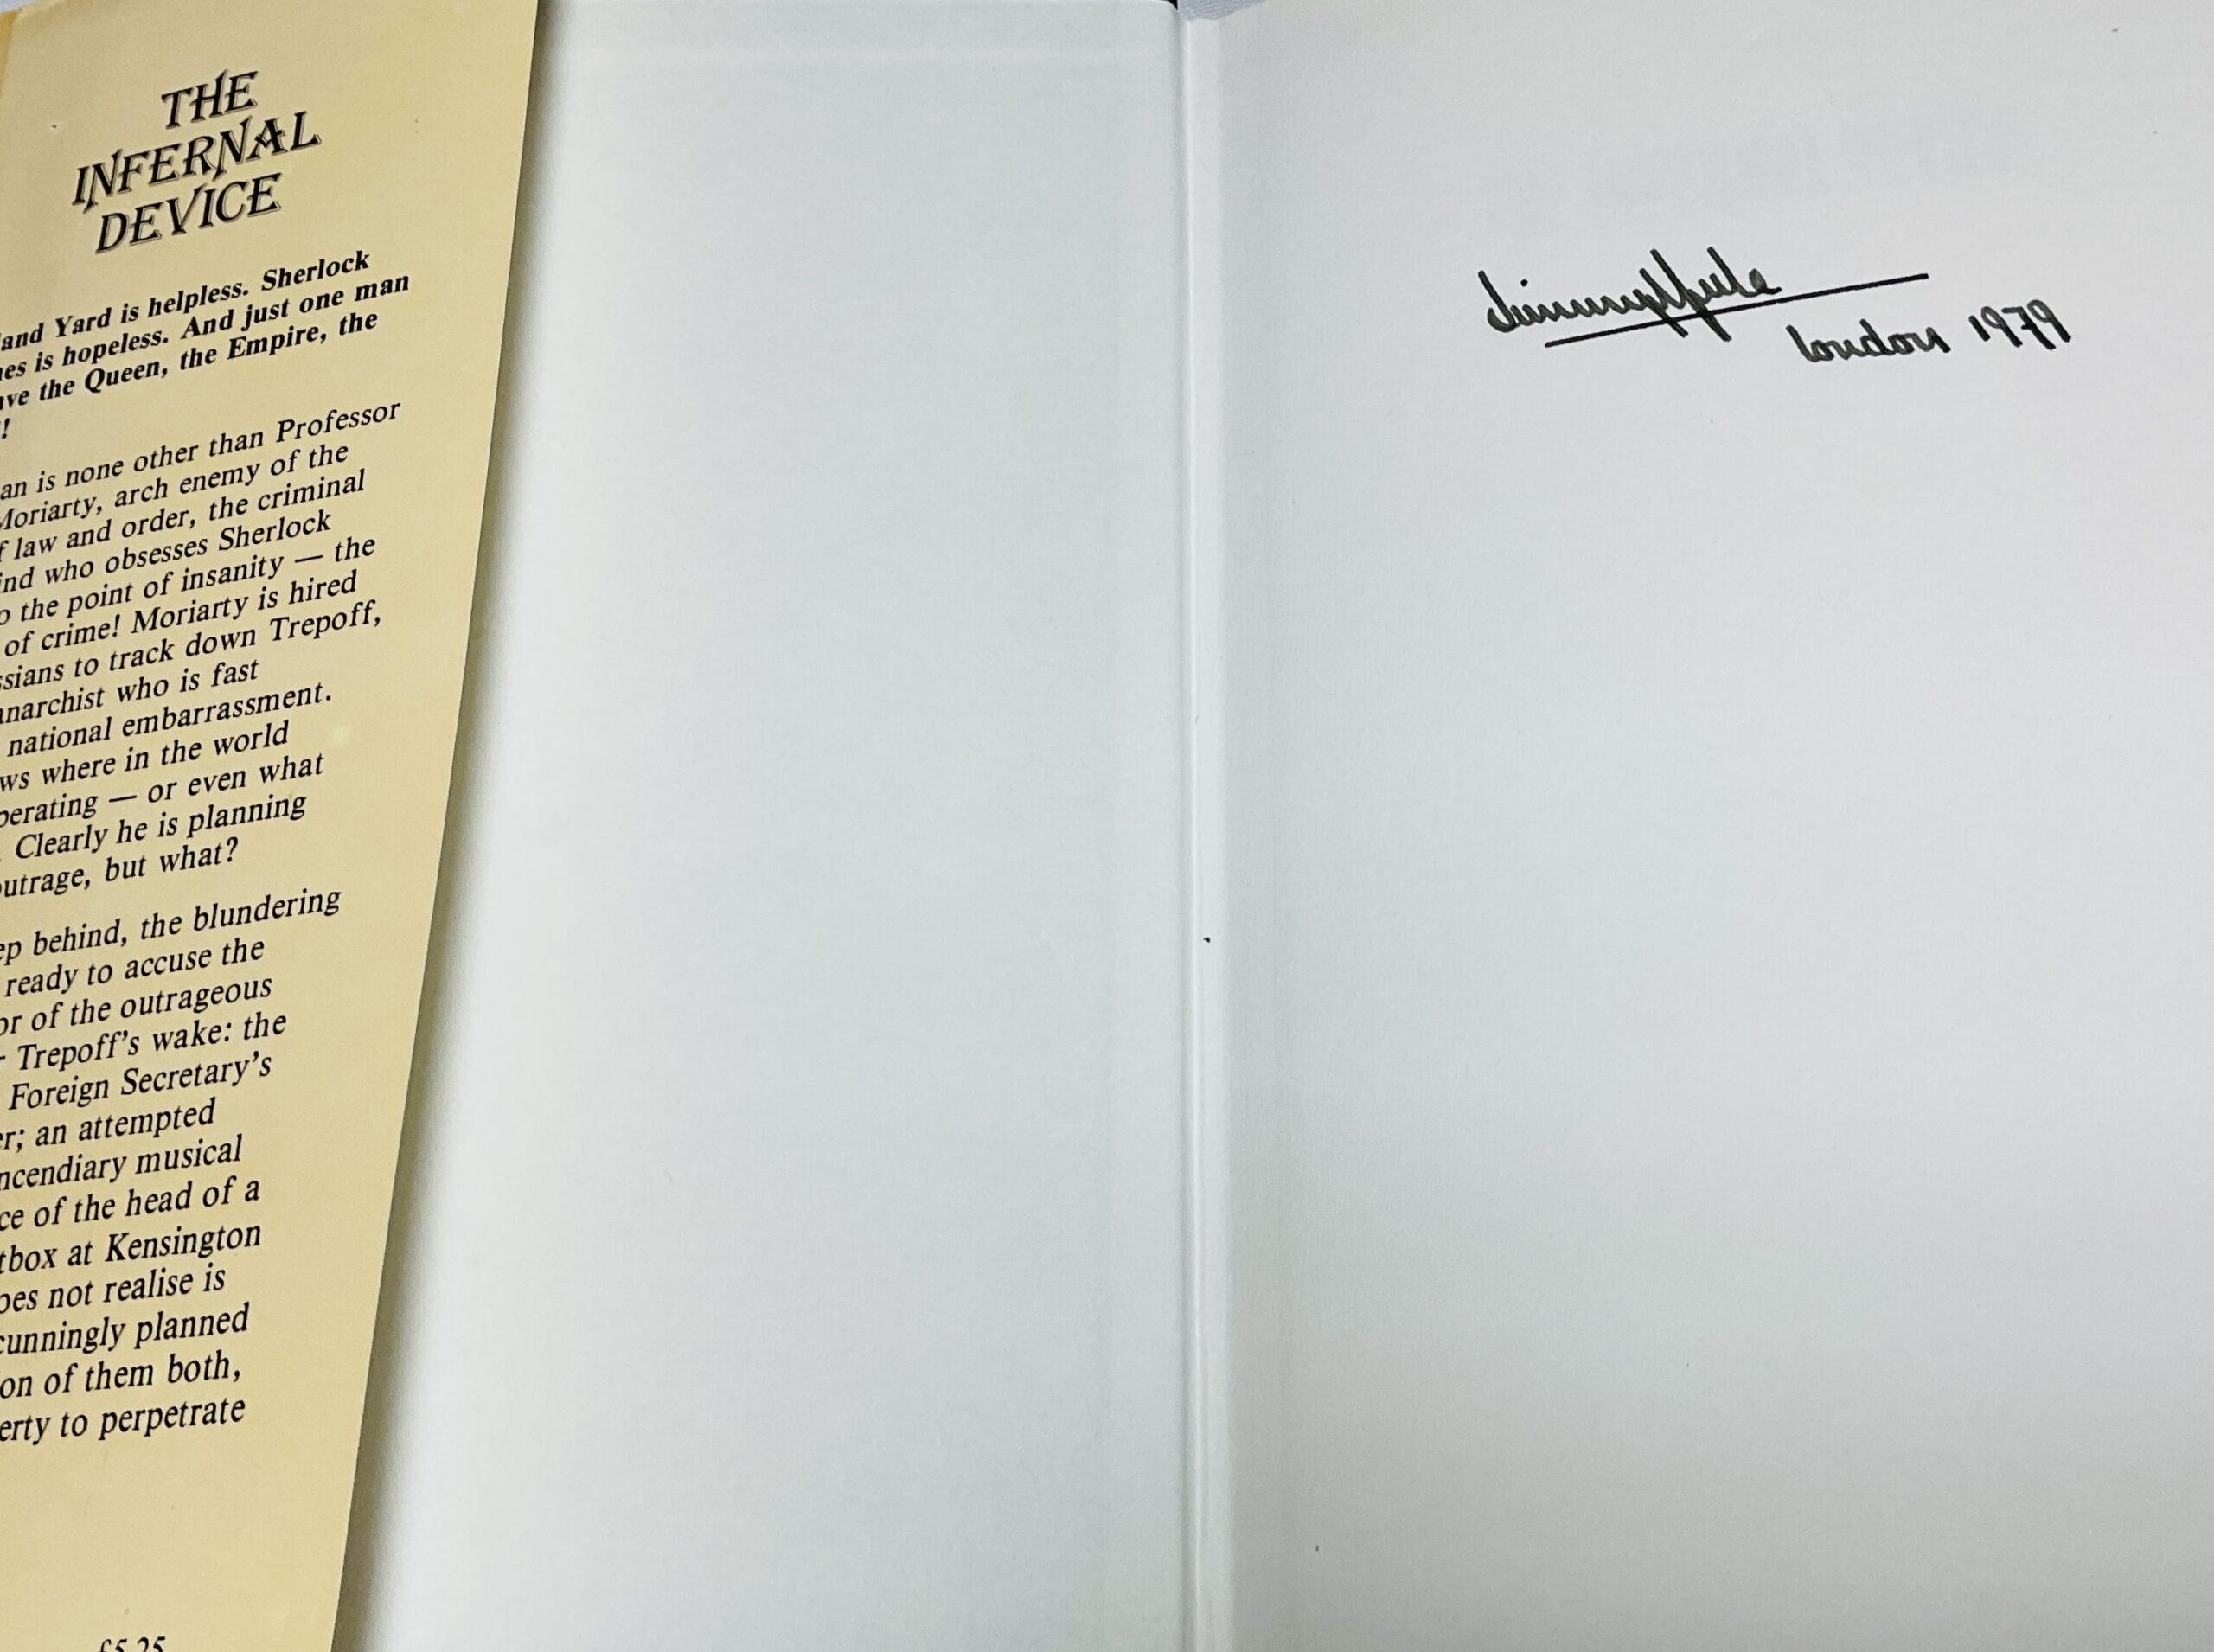 THE
INFERNAL
DEVICE
land Yard is helpless. Sherlock
es is hopeless. And just one man
ve the Queen, the Empire, the
!
an is none other than Professor
Moriarty, arch enemy of the
f law and order, the criminal
ind who obsesses Sherlock
o the point of insanity — the
of crime! Moriarty is hired
ssians to track down Trepoff,
anarchist who is fast
national embarrassment.
ws where in the world
perating — or even what
. Clearly he is planning
outrage, but what?
ep behind, the blundering
ready to accuse the
or of the outrageous
r Trepoff's wake: the
Foreign Secretary's
er; an attempted
ncendiary musical
ce of the head of a
tbox at Kensington
oes not realise is
cunningly planned
on of them both,
erty to perpetrate
£5.25
London 1979